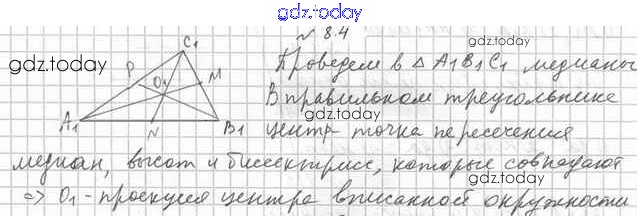 gdz.today
N 8.4
C1
gdz.today
gdz.today
P
O1
M
Проведем в Δ A1B1C1 медианы
В правильном треугольнике
gdz.today
A1
N
B1
центр - точка пересечения
медиан, высот и биссектрис, которые совпадают
gdz.today
=> O1 - проекция центра вписанной окружности
gdz.today